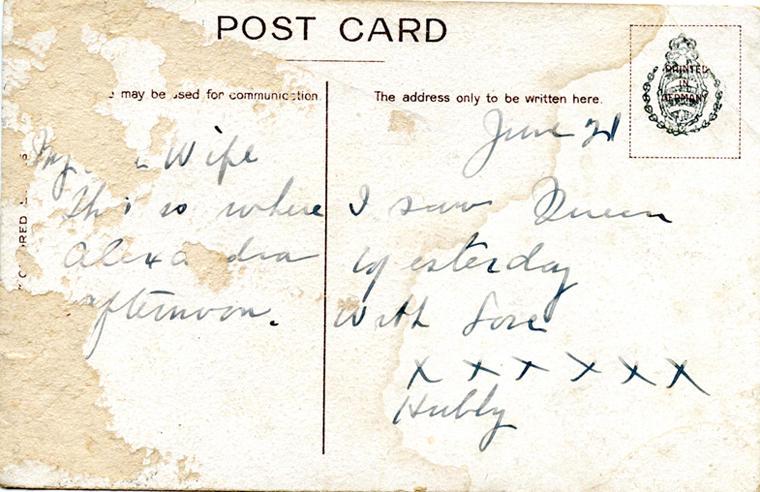 POST CARD
may be used for communication
The address only to be written here.
PRINTED
IN
GERMANY
June 21
My Wife
This is where I saw Queen
Alexa dra yesterday
afternoon. With Love
X X X X X X
Hubby